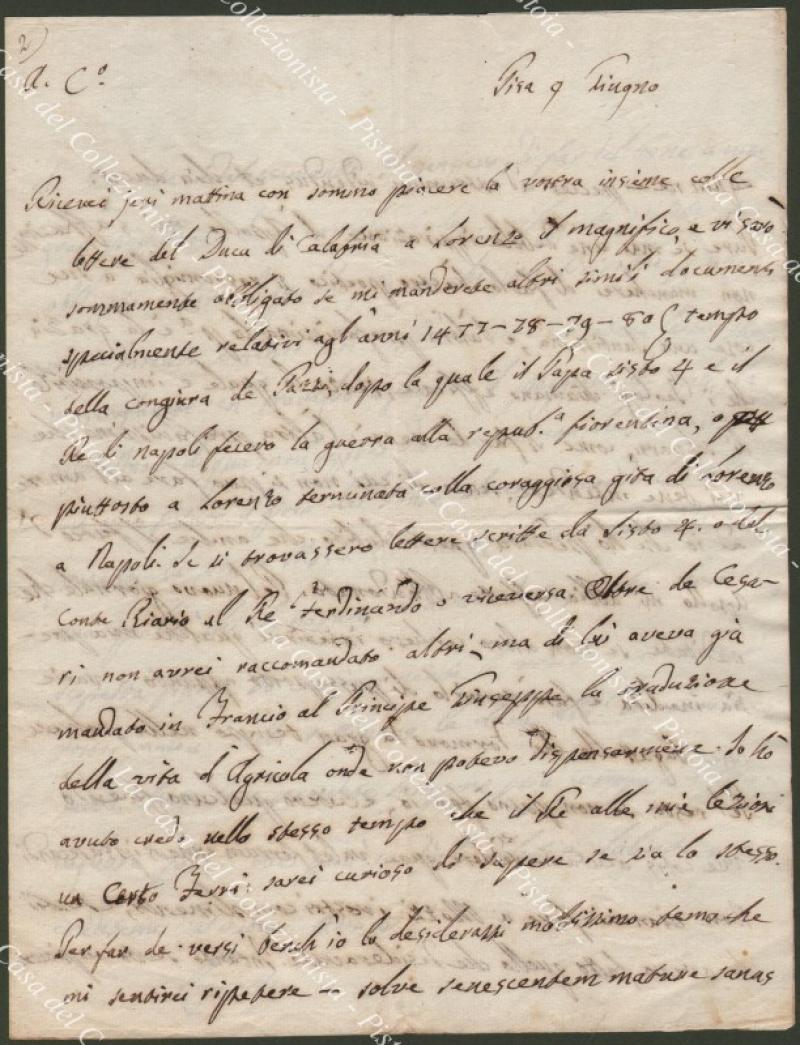 2)
A. C.º
Pisa 9 Giugno
Ricevei jeri mattina con sommo piacere la vostra insieme colle
lettere del Duca di Calabria a Lorenzo il magnifico, e vi sarò
sommamente obbligato se mi manderete altri simili documenti
specialmente relativi agl'anni 1477-78-79-80 tempo
della congiura de Pazzi, dopo la quale il Papa Sisto 4 e il
Re di Napoli fecero la guerra alla repub.ª fiorentina, o
piuttosto a Lorenzo terminata colla coraggiosa gita di Lorenzo
a Napoli. Se si trovassero lettere scritte da Sisto 4. o dal
Conte Riario al Re Ferdinando o viceversa. Oltre de Cesa-
ri non avrei raccomandato altri, ma di lui aveva già
mandato in Francia al Principe Giuseppe la traduzione
della vita d'Agricola onde non potevo dispensarmene. Io hò
avuto credo nello stesso tempo che il Re alle mie lezioni
un Certo Ferri: sarei curioso di sapere se sia lo stesso.
Per far de versi bench'io lo desiderassi moltissimo temo che
mi sentirei ripetere — solve senescentem mature sanas
La Casa del Collezionista - Pistoia -